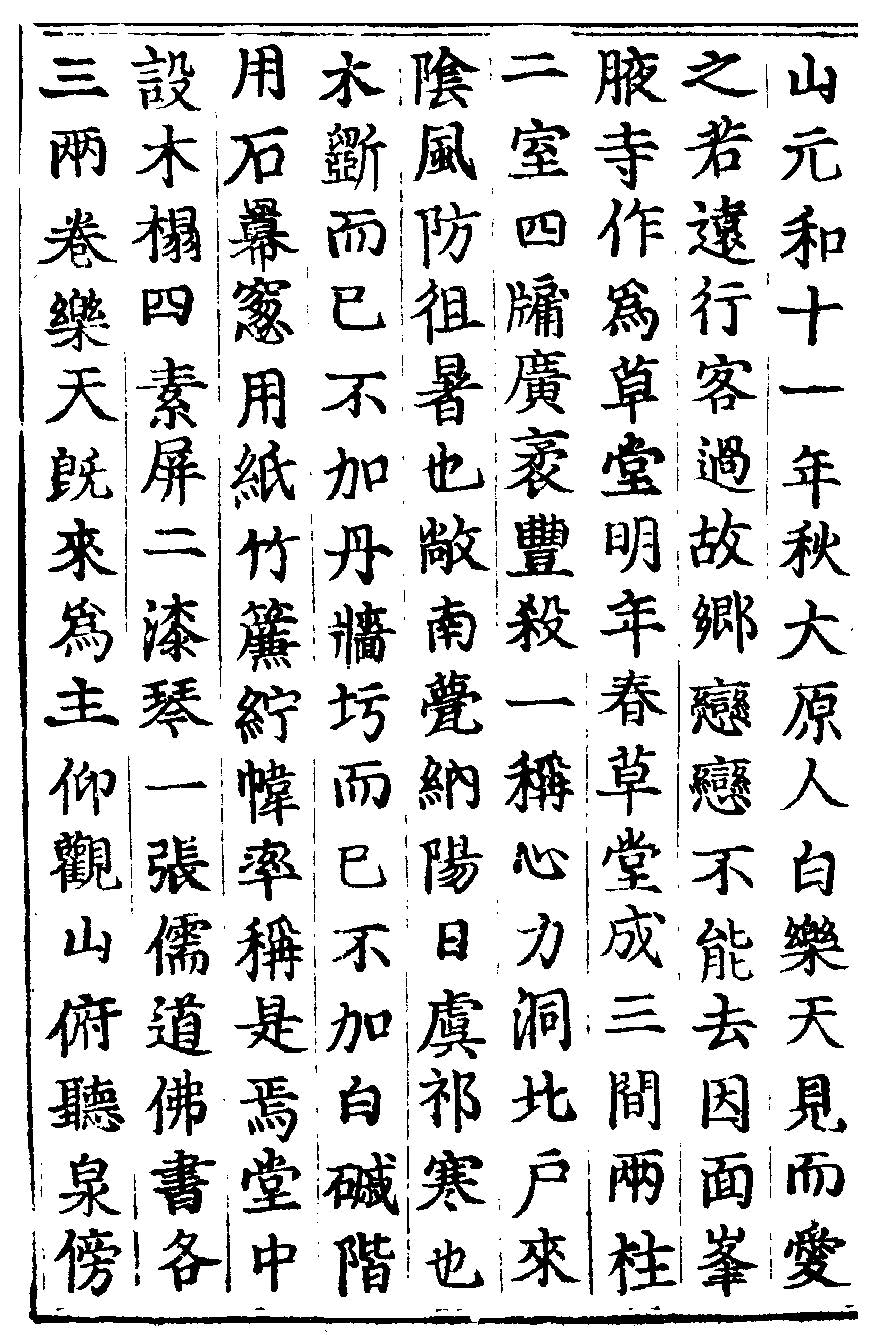 山元和十一年秋大原人白樂天見而愛
之若遠行客過故鄉戀戀不能去因面峯
腋寺作爲草堂明年春草堂成三間兩柱
二室四牖廣袤豐殺一稱心力洞北戶來
陰風防徂暑也敞南甍納陽日虞祁寒也
木斵而已不加丹牆圬而已不加白磩階
用石羃窻用紙竹簾紵幃率稱是焉堂中
設木榻四素屏二漆琴一張儒道佛書各
三兩卷樂天旣來爲主仰觀山俯聽泉傍